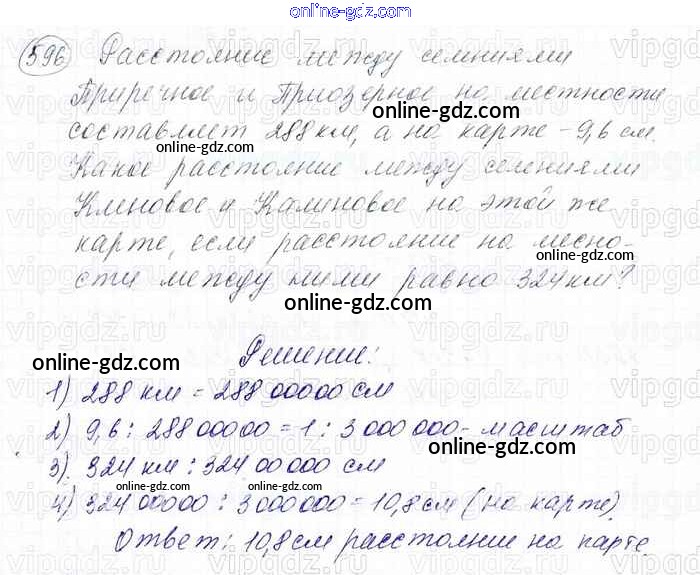 online-gdz.com
596 Расстояние между селениями
Приречное и Приозерное на местности
online-gdz.com
составляет 288 км, а на карте - 9,6 см.
online-gdz.com online-gdz.com
Какое расстояние между селениями
Кленовое и Калиновое на этой же
online-gdz.com
карте, если расстояние на месно-
сти между ними равно 324 км?
online-gdz.com
Решение:
online-gdz.com
1) 288 км = 288 00000 см
online-gdz.com
2) 9,6 : 288 00000 = 1 : 3 000 000 - масштаб
online-gdz.com
3) 324 км : 324 00 000 см
4) 324 00000 : 3 000 000 = 10,8 см (на карте).
online-gdz.com online-gdz.com
Ответ: 10,8 см расстояние на карте.
online-gdz.com